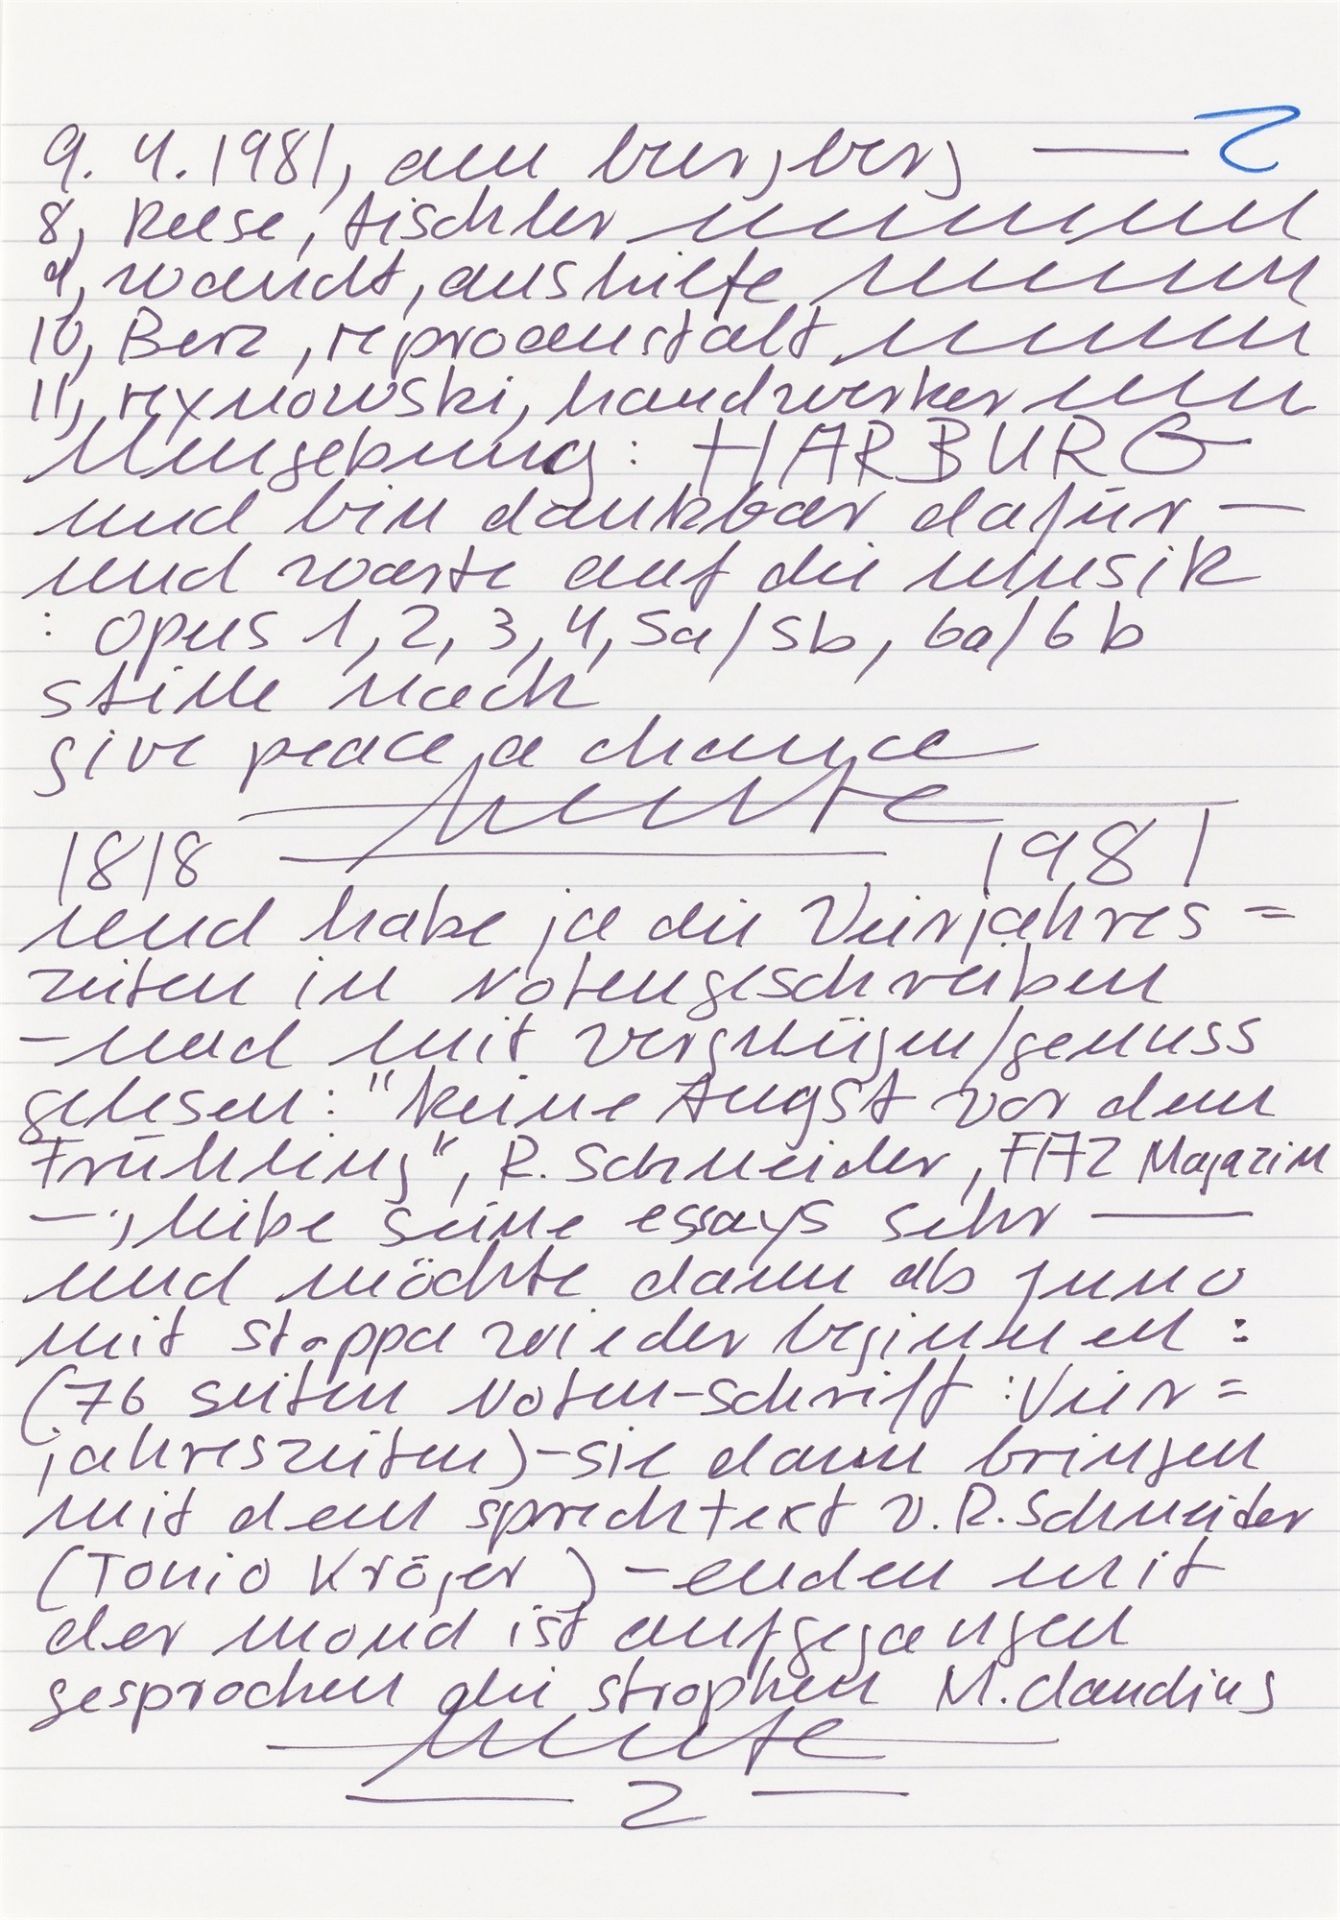 9. 4. 1981, am burgberg — 2
8, Reese, tischler
9, wandt, aushilfe
10, Berz, reproanstalt
11, rexnowski, handwerker
Umgebung: HARBURG
und bin dankbar dafür —
und warte auf die Musik
: opus 1, 2, 3, 4, 5a/5b, 6a/6b
stille nach
give peace a chance
heute
1818 — 1981
und habe ja die Vierjahres=
zeiten in Notengeschreiben
– und mit vergnügen/genuss
gelesen: "keine Angst vor dem
Frühling", R. Schneider, FAZ Magazin
— ; liebe seine essays sehr —
und möchte dann ab juno
mit stoppa wieder beginnen :
(76 seiten Noten-schrift : Vier=
jahreszeiten) – sie dann bringen
mit dem sprechtext v. R. Schneider
(Tonio Kröger) – enden mit
der mond ist aufgegangen
gesprochen die strophen M. claudius
heute
— 2 —